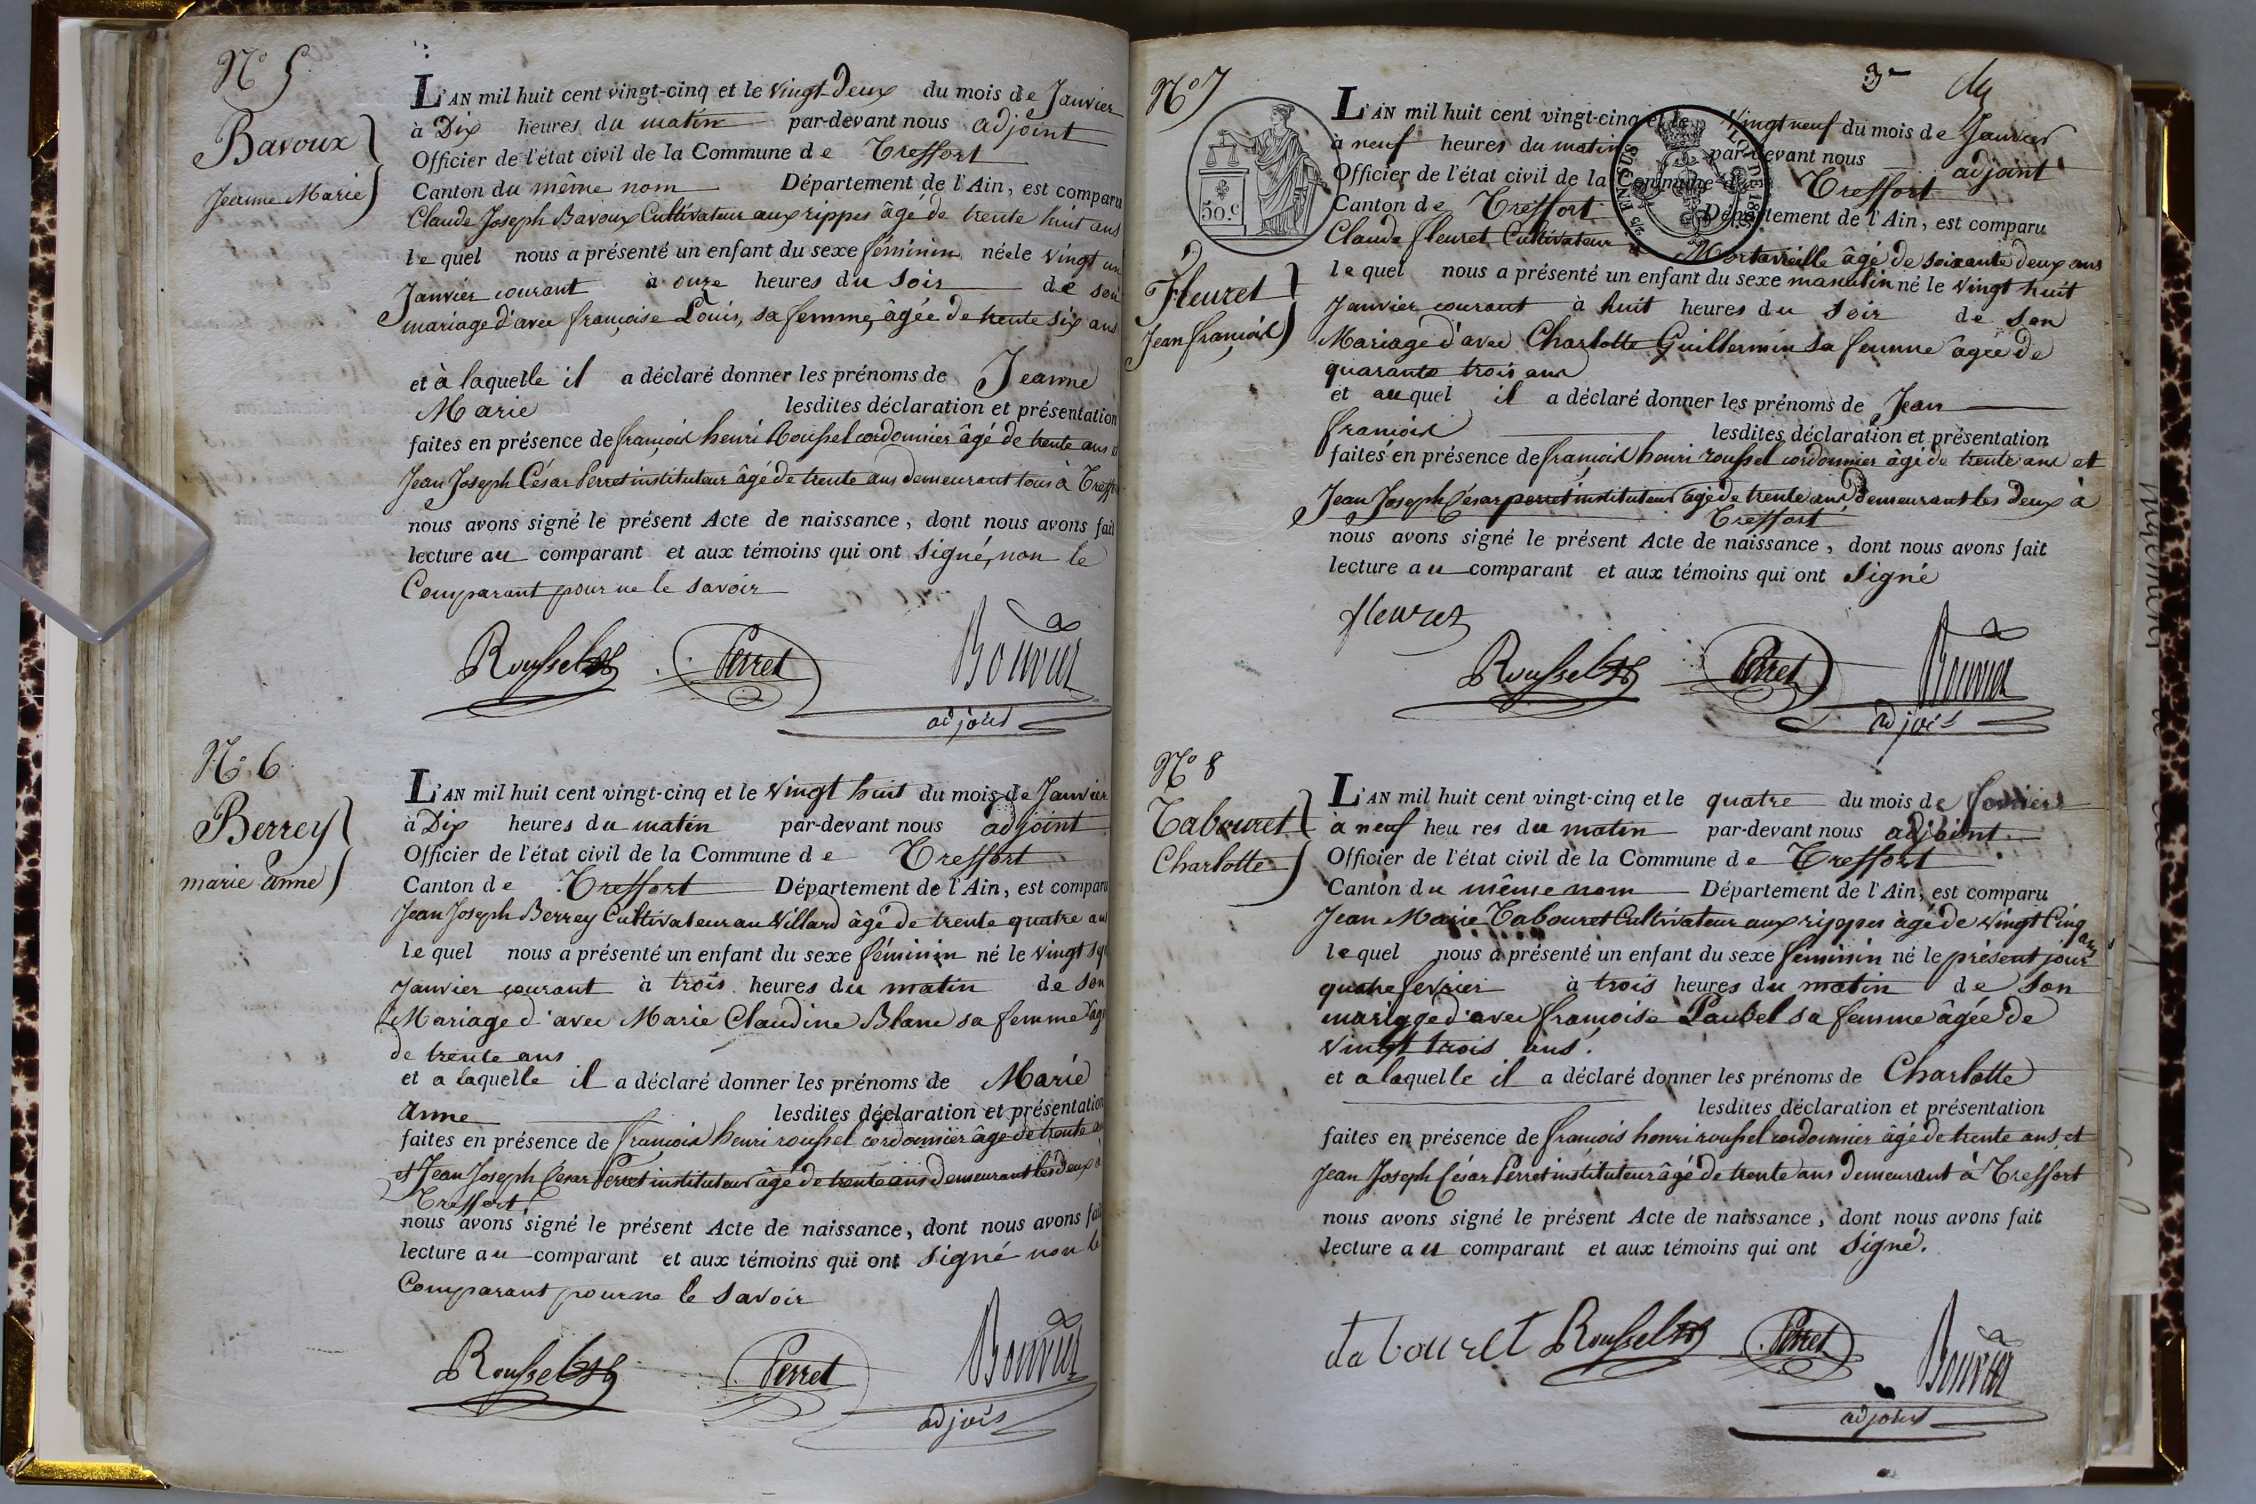 N° 5
Bavoux
Jeanne Marie
L'AN mil huit cent vingt-cinq et le vingt Deux du mois de Janvier
à Dix heures du matin par-devant nous adjoint
Officier de l'état civil de la Commune de Treffort
Canton du même nom Département de l'Ain, est comparu
Claude Joseph Bavoux Cultivateur aux rippes âgé de trente huit ans
lequel nous a présenté un enfant du sexe féminin née le vingt un
Janvier courant à onze heures du soir de son
mariage d'avec françoise Louis, sa femme, âgée de trente six ans
et à laquelle il a déclaré donner les prénoms de Jeanne
Marie lesdites déclaration et présentation
faites en présence de françois henri Roussel cordonnier âgé de trente ans et
Jean Joseph César Perret instituteur âgé de trente ans demeurant tous à Treffort
nous avons signé le présent Acte de naissance, dont nous avons fait
lecture au comparant et aux témoins qui ont signé, non le
Comparant pour ne le savoir
Roussel Perret Bouvier
adjoint
N° 6
Berrey
marie anne
L'AN mil huit cent vingt-cinq et le vingt huit du mois de Janvier
à Dix heures du matin par-devant nous adjoint
Officier de l'état civil de la Commune de Treffort
Canton de Treffort Département de l'Ain, est comparu
Jean Joseph Berrey Cultivateur au Villard âgé de trente quatre ans
lequel nous a présenté un enfant du sexe féminin né le vingt sept
Janvier courant à trois heures du matin de son
Mariage d'avec Marie Claudine Blanc sa femme âgée
de trente ans
et a laquelle il a déclaré donner les prénoms de Marie
anne lesdites déclaration et présentation
faites en présence de françois henri roussel cordonnier âgé de trente ans
et Jean Joseph César Perret instituteur âgé de trente ans demeurant les deux à
Treffort
nous avons signé le présent Acte de naissance, dont nous avons fait
lecture au comparant et aux témoins qui ont signé non le
Comparant pour ne le savoir
Roussel Perret Bouvier
adjoint
3
N° 7
50.c
Fleuret
Jean françois
L'AN mil huit cent vingt-cinq et le Vingt neuf du mois de Janvier
à neuf heures du matin par-devant nous adjoint
Officier de l'état civil de la Commune de Treffort
Canton de Treffort Département de l'Ain, est comparu
Claude fleuret Cultivateur à Montarville âgé de soixante deux ans
lequel nous a présenté un enfant du sexe masculin né le vingt huit
Janvier courant à huit heures du soir de son
Mariage d'avec Charlotte Guillermin sa femme âgée de
quarante trois ans
et auquel il a déclaré donner les prénoms de Jean
françois lesdites déclaration et présentation
faites en présence de françois henri roussel cordonnier âgé de trente ans et
Jean Joseph César perret instituteur âgé de trente ans demeurant les deux à
Treffort
nous avons signé le présent Acte de naissance, dont nous avons fait
lecture au comparant et aux témoins qui ont signé
fleuret
Roussel Perret Bouvier
adjoint
N° 8
Tabouret
Charlotte
L'AN mil huit cent vingt-cinq et le quatre du mois de fevrier
à neuf heures du matin par-devant nous adjoint
Officier de l'état civil de la Commune de Treffort
Canton du même nom Département de l'Ain, est comparu
Jean Marie Tabouret Cultivateur aux rippes âgé de vingt Cinq ans
lequel nous a présenté un enfant du sexe féminin né le présent jour
quatre fevrier à trois heures du matin de son
mariage d'avec françoise Paubel sa femme âgée de
vingt trois ans.
et a laquelle il a déclaré donner les prénoms de Charlotte
lesdites déclaration et présentation
faites en présence de françois henri roussel cordonnier âgé de trente ans et
Jean Joseph César Perret instituteur âgé de trente ans demeurant à Treffort
nous avons signé le présent Acte de naissance, dont nous avons fait
lecture au comparant et aux témoins qui ont signé.
tabouret Roussel Perret Bouvier
adjoint